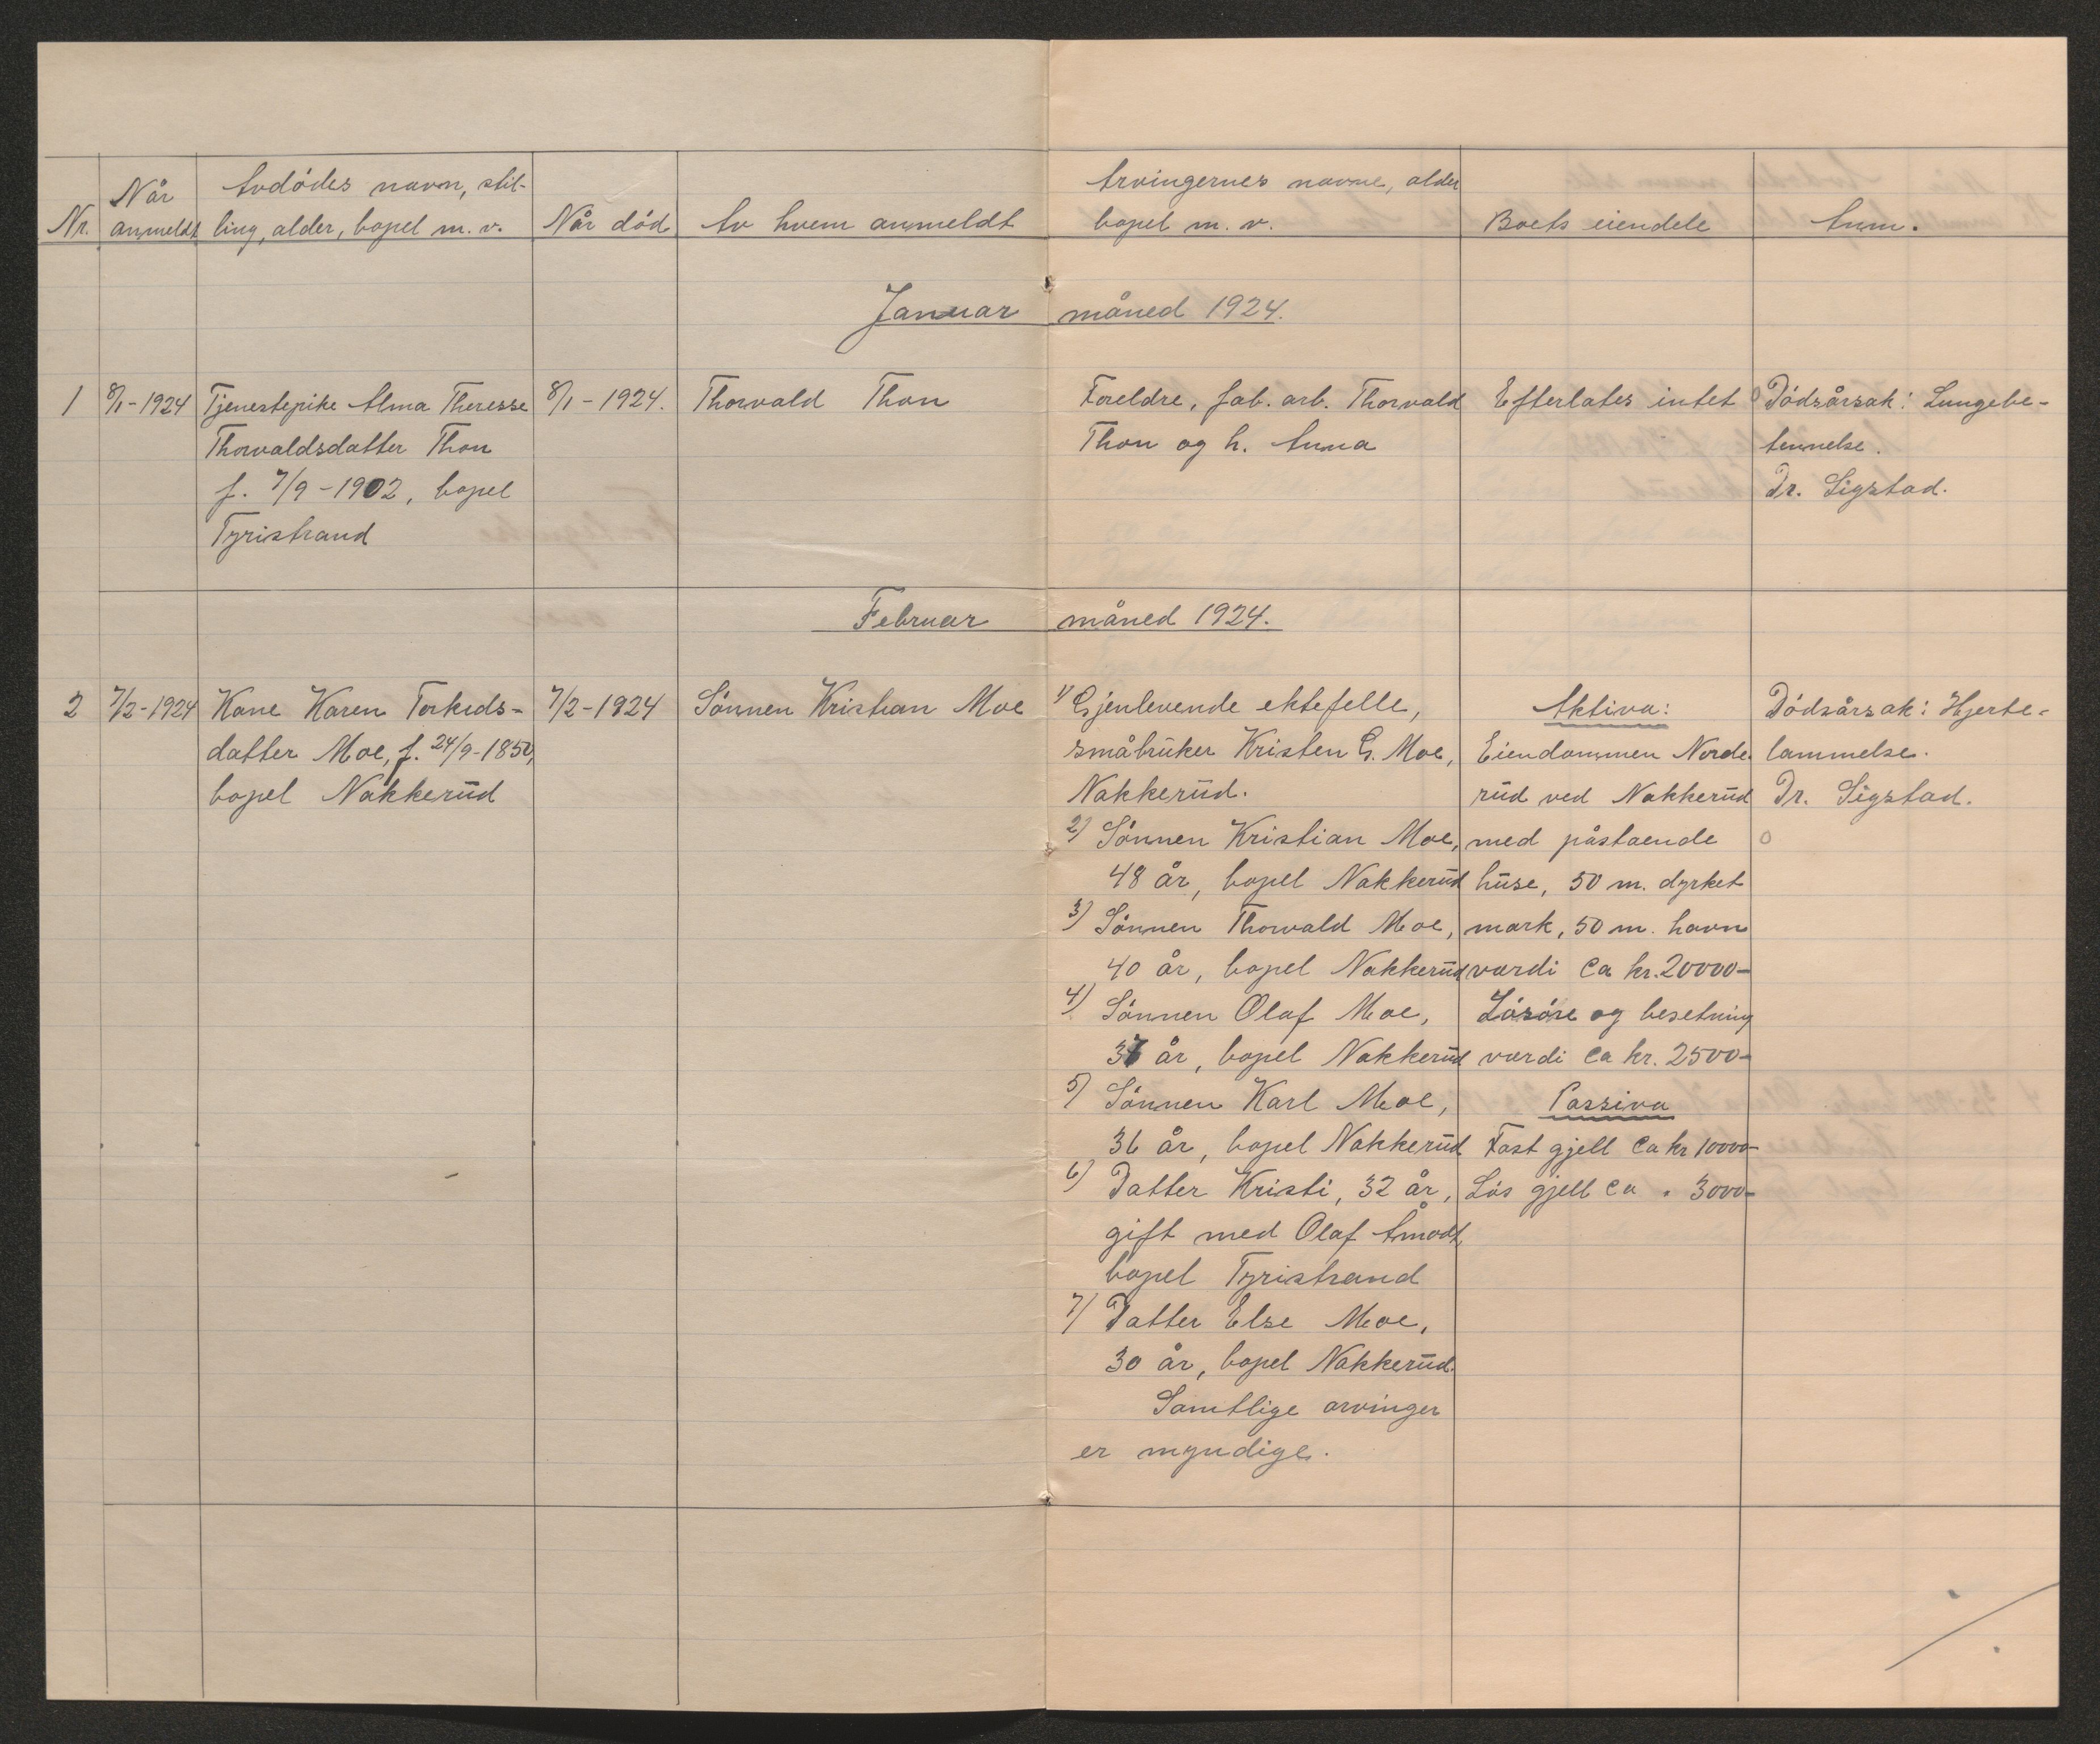 Nr.
Når
anmeldt
Avdødes navn, stil-
ling, alder, bopel m. v.
Når død
Av hvem anmeldt
Arvingernes navne, alder
bopel m. v.
Boets eiendele
Anm.
Januar måned 1924.
1
8/1-1924
Tjenestepike Alma Theresse
Thorvaldsdatter Thon
f. 7/9-1902, bopel
Tyristrand
8/1-1924.
Thorvald Thon
Foreldre, fab. arb. Thorvald
Thon og h. Anna
Efterlates intet
Dødsårsak: Lungebe-
tennelse.
Dr. Sigstad.
Februar måned 1924.
2
7/2-1924
Kone Karen Torkids-
datter Moe, f. 24/9-1850,
bopel Nakkerud
7/2-1924
Sønnen Kristian Moe
1) Gjenlevende ektefelle,
småbruker Kristen G. Moe,
Nakkerud.
2) Sønnen Kristian Moe,
48 år, bopel Nakkerud
3) Sønnen Thorvald Moe,
40 år, bopel Nakkerud
4) Sønnen Olaf Moe,
37 år, bopel Nakkerud
5) Sønnen Karl Moe,
36 år, bopel Nakkerud
6) Datter Kristi, 32 år,
gift med Olaf Åmodt,
bopel Tyristrand
7) Datter Else Moe,
30 år, bopel Nakkerud.
Samtlige arvinger
er myndige.
Aktiva:
Eiendommen Norde-
rud ved Nakkerud
med påstaende
huse, 50 m. dyrket
mark, 50 m. havn
verdi ca kr. 20000-
Løsøre og besetning
verdi ca kr. 2500-
Passiva
Fast gjell ca kr 10000-
Løs gjell ca " 3000-
Dødsårsak: Hjerte-
lammelse.
Dr. Sigstad.